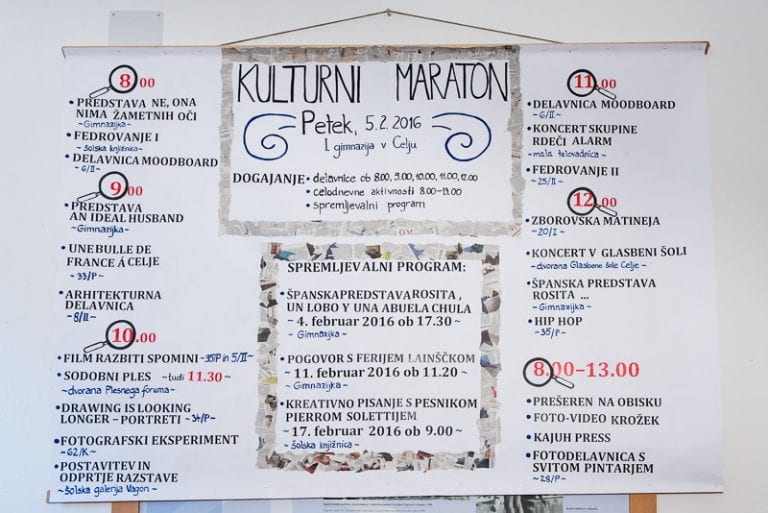 KULTURNI MARATON
Petek, 5.2.2016
I. gimnazija v Celju
DOGAJANJE: • delavnice ob 8.00, 9.00, 10.00, 11.00, 12.00
• celodnevne aktivnosti 8.00-13.00
• spremljevalni program
8.00
• PREDSTAVA NE, ONA
NIMA ŽAMETNIH OČI
~Gimnazijka~
• FEDROVANJE I
~šolska knjižnica~
• DELAVNICA MOODBOARD
~6/II~
9.00
• PREDSTAVA
AN IDEAL HUSBAND
~Gimnazijka~
• UNE BULLE DE
FRANCE Á CELJE
~33/P~
• ARHITEKTURNA
DELAVNICA
~8/II~
10.00
• FILM RAZBITI SPOMINI ~35/P in 5/II~
• SODOBNI PLES ~tudi 11.30~
~dvorana Plesnega foruma~
• DRAWING IS LOOKING
LONGER – PORTRETI ~34/P~
• FOTOGRAFSKI EKSPERIMENT
~62/K~
• POSTAVITEV IN
ODPRTJE RAZSTAVE
~šolska galerija Vagon~
SPREMLJEVALNI PROGRAM:
• ŠPANSKA PREDSTAVA ROSITA,
UN LOBO Y UNA ABUELA CHULA
~ 4. februar 2016 ob 17.30 ~
~Gimnazijka~
• POGOVOR S FERIJEM LAINŠČKOM
~ 11. februar 2016 ob 11.20 ~
~Gimnazijka~
• KREATIVNO PISANJE S PESNIKOM
PIERROM SOLETTIJEM
~ 17. februar 2016 ob 9.00 ~
~šolska knjižnica~
11.00
• DELAVNICA MOODBOARD
~6/II~
• KONCERT SKUPINE
RDEČI ALARM
~mala telovadnica~
• FEDROVANJE II
~25/II~
12.00
• ZBOROVSKA MATINEJA
~20/I~
• KONCERT V GLASBENI ŠOLI
~dvorana Glasbene šole Celje~
• ŠPANSKA PREDSTAVA
ROSITA ...
~Gimnazijka~
• HIP HOP
~35/P~
8.00–13.00
• PREŠEREN NA OBISKU
• FOTO-VIDEO KROŽEK
• KAJUH PRESS
• FOTODELAVNICA S
SVITOM PINTARJEM
~28/P~